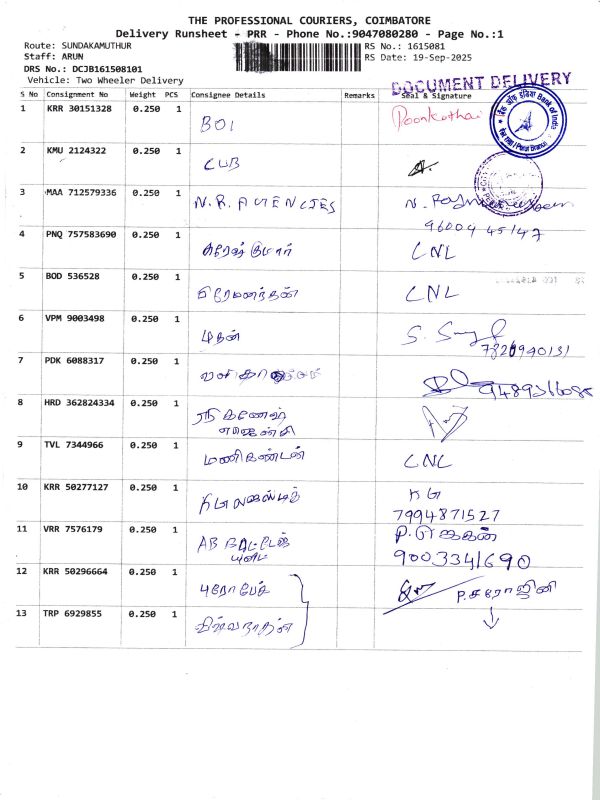 THE PROFESSIONAL COURIERS, COIMBATORE
Delivery Runsheet - PRR - Phone No.:9047080280 - Page No.:1
Route: SUNDAKAMUTHUR RS No.: 1615081
Staff: ARUN RS Date: 19-Sep-2025
DRS No.: DCJB161508101
Vehicle: Two Wheeler Delivery
DOCUMENT DELIVERY
S No Consignment No Weight PCS Consignee Details Remarks Seal & Signature
1 KRR 30151328 0.250 1 BOI Poonkothai
2 KMU 2124322 0.250 1 CUB
3 MAA 712579336 0.250 1 N.R.
96004 45147
4 PNQ 757583690 0.250 1 CNL
5 BOD 536528 0.250 1 CNL
6 VPM 9003498 0.250 1
7 PDK 6088317 0.250 1
8 HRD 362824334 0.250 1 ஸ்ரீ கணேஷ்
ஏஜென்சி
9 TVL 7344966 0.250 1 மணிகண்டன் CNL
10 KRR 50277127 0.250 1 KG
7994871527
11 VRR 7576179 0.250 1 AB P.
9003341690
12 KRR 50296664 0.250 1 P.சரோஜினி
13 TRP 6929855 0.250 1 விஸ்வநாதன்